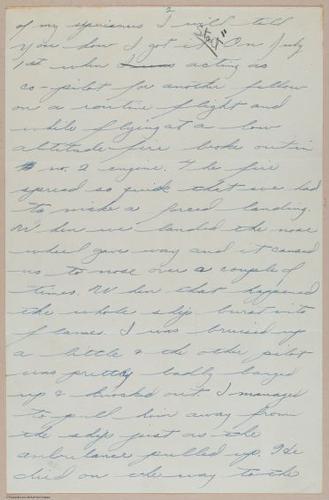 2
of my experiences I will tell
you how I got it. Start " On July
1st when I was acting as
co-pilot for another fellow
on a routine flight and
while flying at a low
altitude fire broke out in
no. 2 engine. The fire
spread so quick that we had
to make a forced landing.
When we landed the nose
wheel gave way and it caused
us to nose over a couple of
times. When that happened
the whole ship burst into
flames. I was bruised up
a little & the other pilot
was pretty badly banged
up & knocked out I managed
to pull him away from
the ship just as the
ambulance pulled up. He
died on the way to the